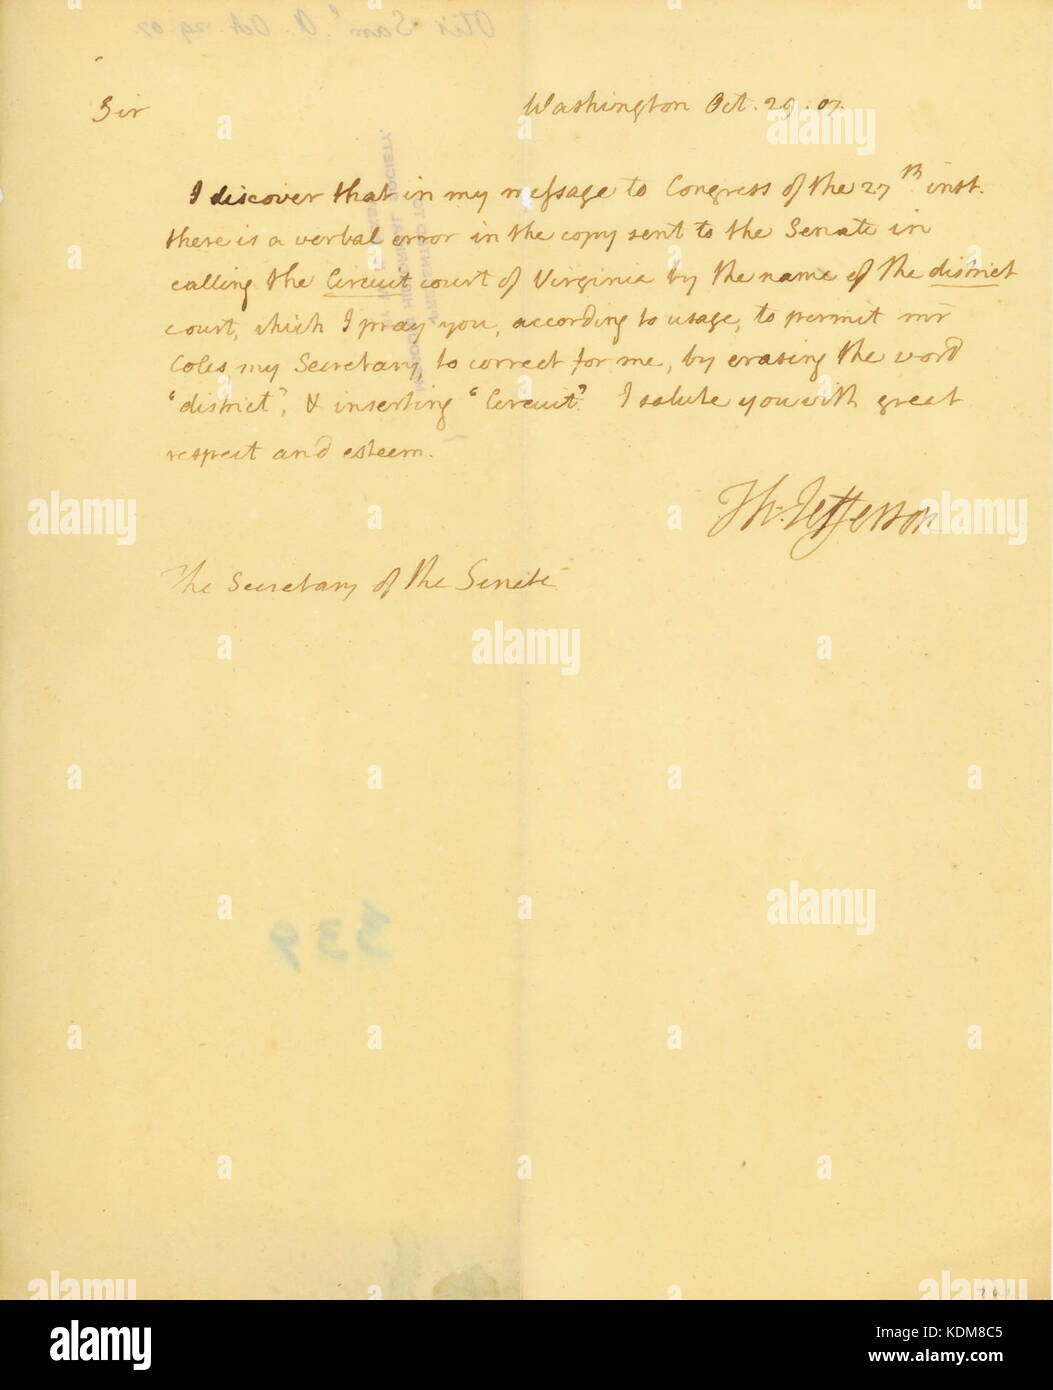 Sir Washington Oct. 29. 07.
I discover that in my message to Congress of the 27th inst.
there is a verbal error in the copy sent to the Senate in
calling the Circuit court of Virginia by the name of the district
court, which I pray you, according to usage, to permit mr
Coles my Secretary, to correct for me, by erasing the word
"district", & inserting "Circuit." I salute you with great
respect and esteem.
Th: Jefferson
The Secretary of the Senate
339
alamy stock photo
a alamy
KDM8C5
www.alamy.com